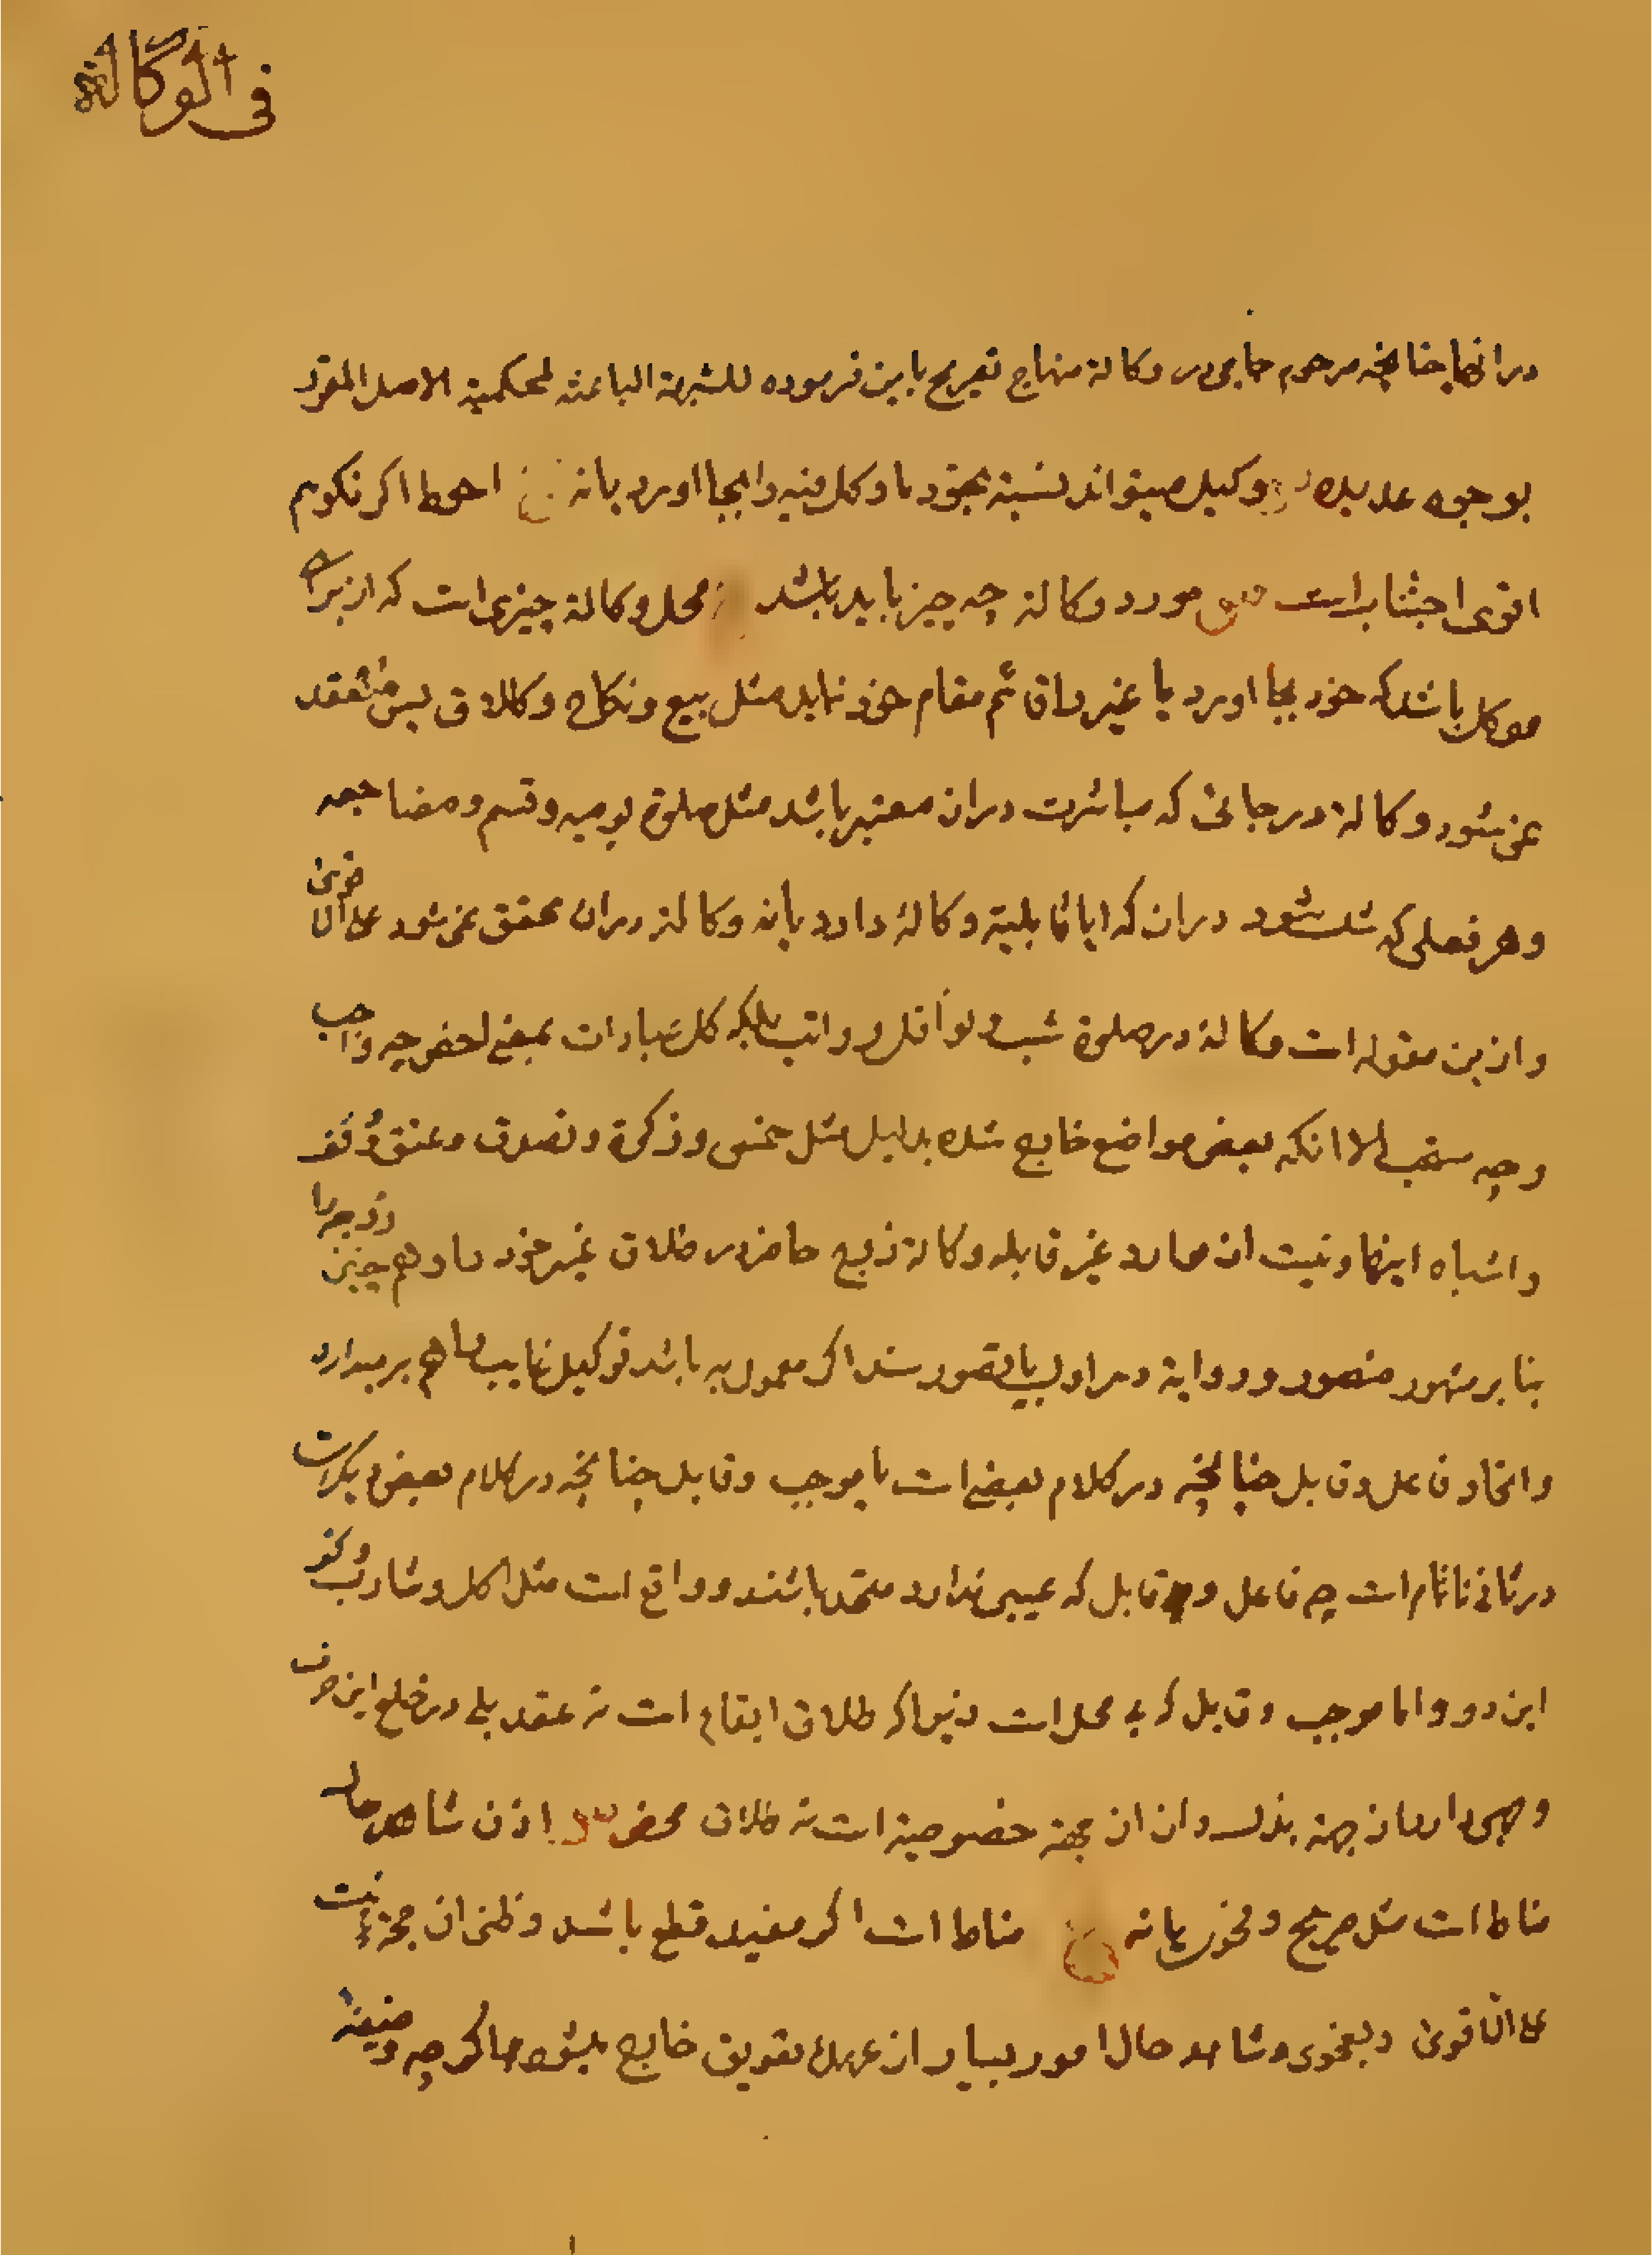 فی الوکالة
در انها چنانچه مرحوم حاجی در وکالة منهاج تصریح باین فرموده للشبهة الباعثه لمحکمیة الاصل المقرر
بوجوه عدیده وکیل میتواند نسبة بخود ماوکل فیه را بجا اورد یا نه احوط اگر نگویم
اقوی اجتناب است مورد وکالة چه چیز باید باشد محل وکالة چیزی است که از برای
موکل باشد که خود بجا اورد یا غیر را قائم مقام خود نماید مثل بیع ونکاح وطلاق پس منعقد
نمی شود وکالة در جائی که مباشرت در ان معتبر باشد مثل صلوة یومیه وقسم ومضاجعه
وهر فعلی که شک شود در ان که ایا قابلیة وکالة دارد یا نه وکالة در ان محقق نمی شود علی الاقوی
واز این مقوله است وکالة در صلوة شب و نوافل و رواتب بلکه کل عبادات بمعنی اخص چه واجب
وچه مستحب الا انکه بعض مواضع خارج شده بدلیل مثل خمس وزکوة وتصدق وعتق ووقف
واشباه اینها ونیست از موارد غیر قابله وکالة زوج حاضر در طلاق غیر خود را وهم چنین زوجه را
بنابر مشهور منصور وروایة در اول با قصور سند اگر معمول به باشد توکیل غایب را هم بر میدارد
واتحاد فاعل وقابل چنانچه در کلام بعضی است یا موجب وقابل چنانچه در کلام بعض دیگر است
در ثانی ناتمام است چه فاعل و قابل که عیبی ندارد متحد باشند وواقع است مثل اکل وشارب وکذا
این دو واما موجب وقابل که بی محل است زیرا که طلاق ایقاع است نه عقد بلی در خلع این حرف
وجهی دارد از جهة بذل وان از جهة خصوصیة است نه طلاق محض اذن شاهد حال
مناط است مثل صریح وفحوی یا نه مناط است اگر مفید قطع باشد وظنی ان مجزی نیست
علی الاقوی وبفحوی وشاهد حال امور بسیار از عهده تفویق خارج میشود ها اگر چه وضیفه